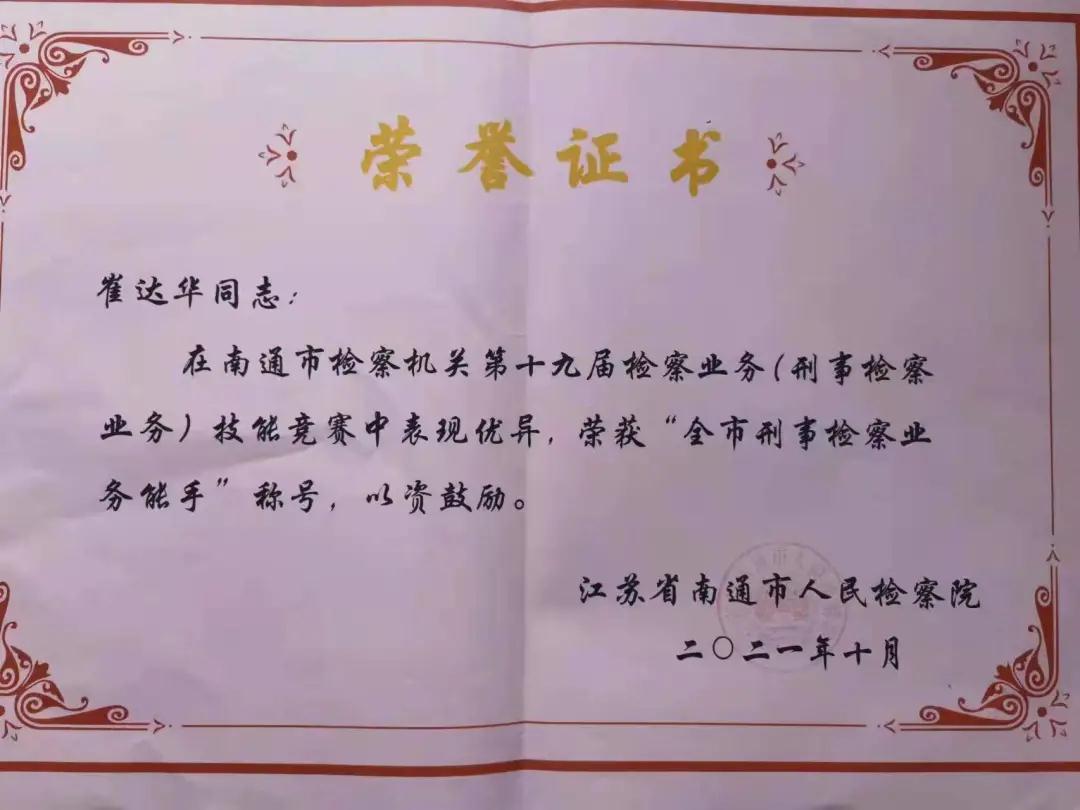 荣誉证书
崔达华同志：
在南通市检察机关第十九届检察业务（刑事检察
业务）技能竞赛中表现优异，荣获“全市刑事检察业
务能手”称号，以资鼓励。
江苏省南通市人民检察院
二〇二一年十月